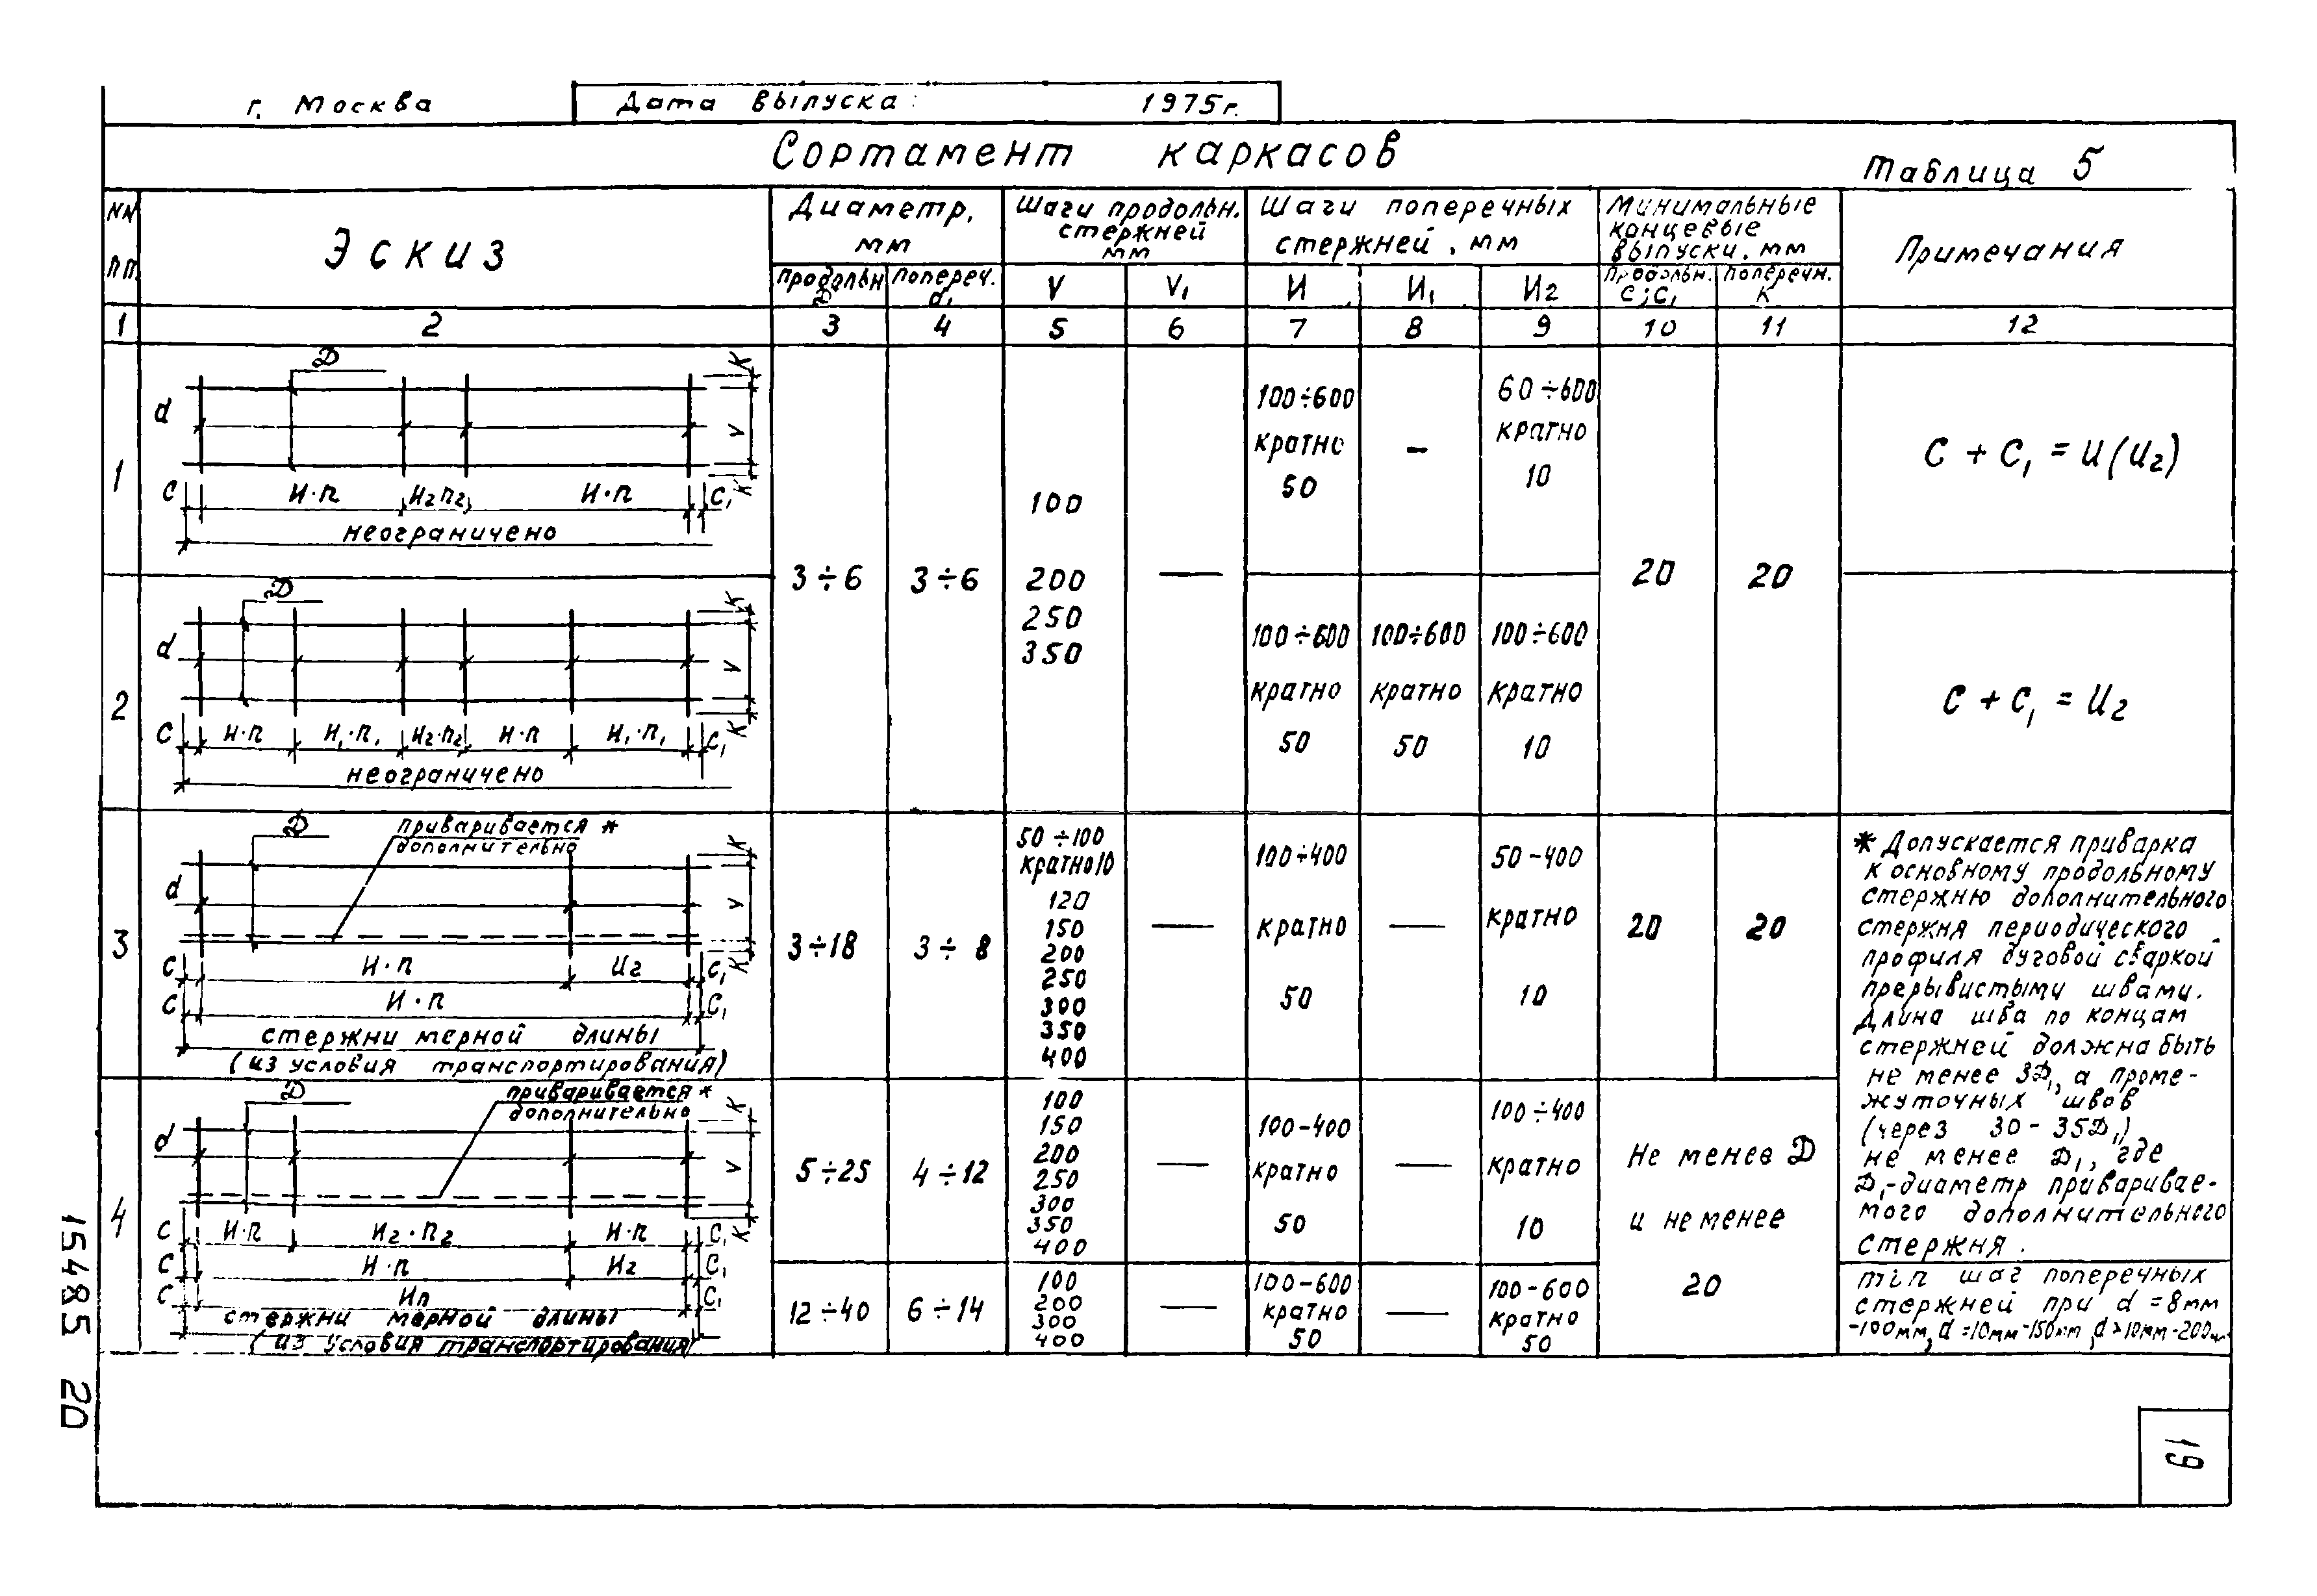 г. Москва
Дата выпуска 1975г.
Сортамент каркасов
Таблица 5
NN пп
Эскиз
Диаметр, мм
продольн Д
попереч. d₁
Шаги продольн. стержней мм
V
V₁
Шаги поперечных стержней, мм
И
И₁
И2
Минимальные концевые выпуски, мм
продольн. С; С₁
поперечн. К
Примечания
1 2 3 4 5 6 7 8 9 10 11 12
1
Д
К
d
V
К
С И·п И2п2 И·п С₁
неограничено
3÷6
3÷6
100
200
250
350
—
100÷600
кратно
50
–
60÷600
кратно
10
20
20
С + С₁ = И(И2)
2
Д
К
d
V
К
С И·п И₁·п₁ И2·п2 И·п И₁·п₁ С₁
неограничено
100÷600
кратно
50
100÷600
кратно
50
100÷600
кратно
10
С + С₁ = И2
3
Д
приваривается *
дополнительно
К
d
V
К
С И·п И2 С₁
С И·п С₁
стержни мерной длины
(из условия транспортирования)
3÷18
3÷8
50÷100
кратно10
120
150
200
250
300
350
400
—
100÷400
кратно
50
—
50-400
кратно
10
20
20
* Допускается приварка
к основному продольному
стержню дополнительного
стержня периодического
профиля дуговой сваркой
прерывистыми швами.
Длина шва по концам
стержней должна быть
не менее 3Д₁, а проме-
жуточных швов
(через 30-35Д₁)
не менее Д₁, где
Д₁-диаметр приваривае-
мого дополнительного
стержня.
4
Д
приваривается *
дополнительно
К
d
V
К
С И·п И2·п2 И·п С₁
С И·п И2 С₁
С Ип С₁
стержни мерной длины
(из условия транспортирования)
5÷25
4÷12
100
150
200
250
300
350
400
—
100-400
кратно
50
—
100÷400
кратно
10
Не менее Д
и не менее
20
12÷40
6÷14
100
200
300
400
—
100-600
кратно
50
—
100-600
кратно
50
min шаг поперечных
стержней при d=8мм
-100мм, d=10мм-150мм, d>10мм-200мм
15485 20
19